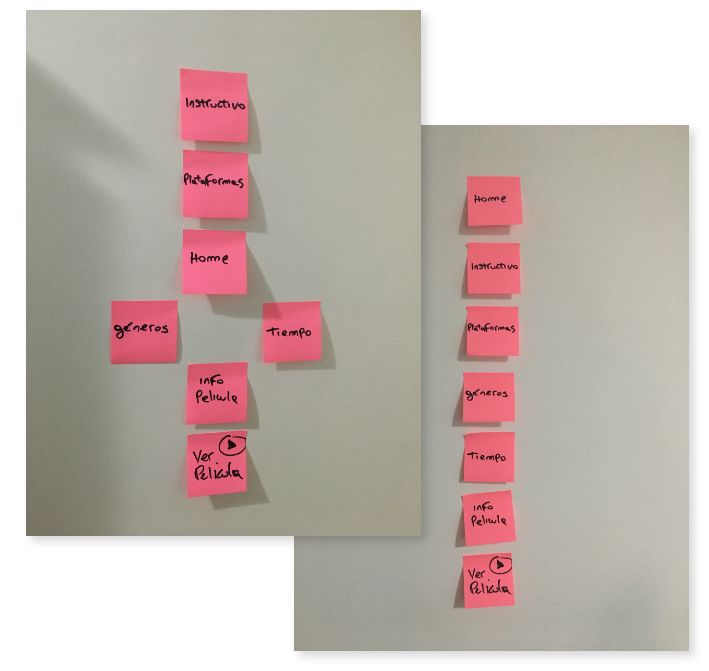 Instructivo
Plataformas
Home
géneros
Tiempo
info
Película
Ver
Película
Home
Instructivo
Plataformas
géneros
Tiempo
info
Película
Ver
Película